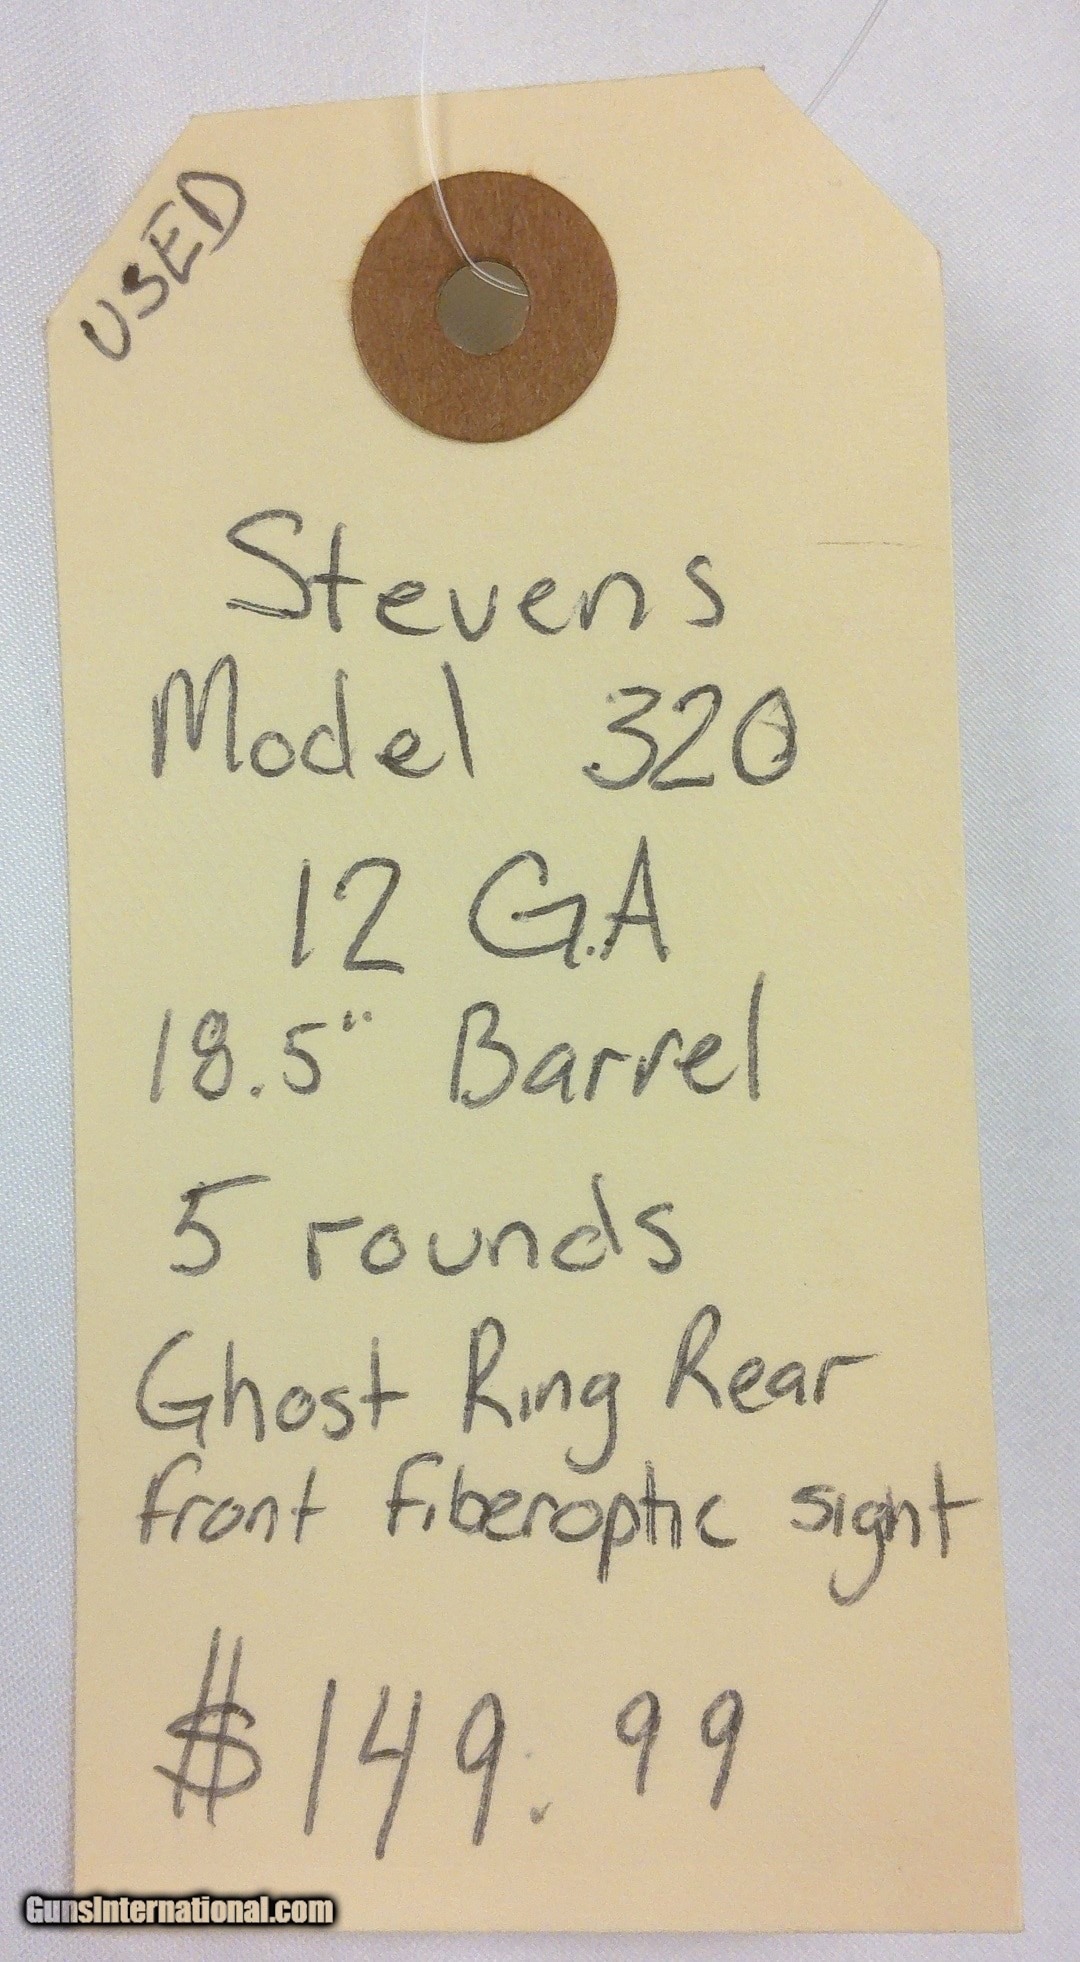 USED
Stevens
Model 320
12 G.A
18.5" Barrel
5 rounds
Ghost Ring Rear
front fiberoptic sight
$149.99
GunsInternational.com